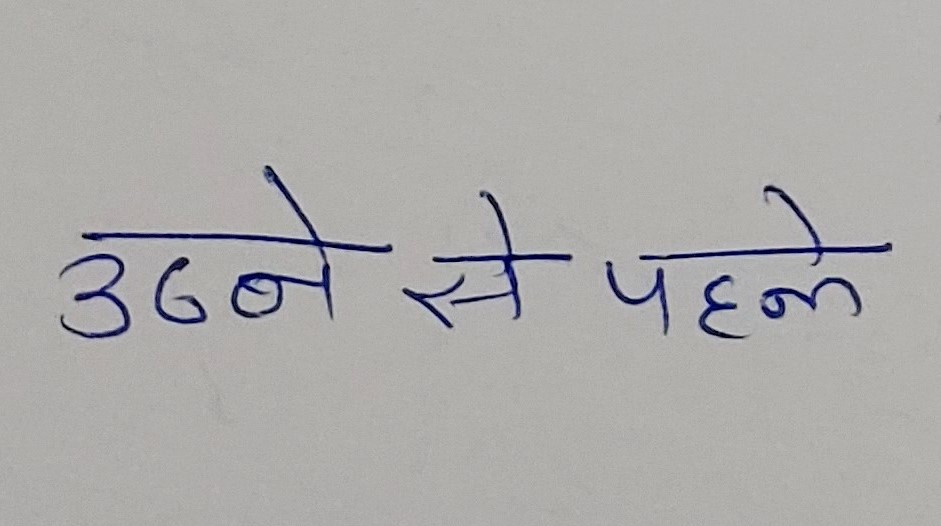 उठने से पहले